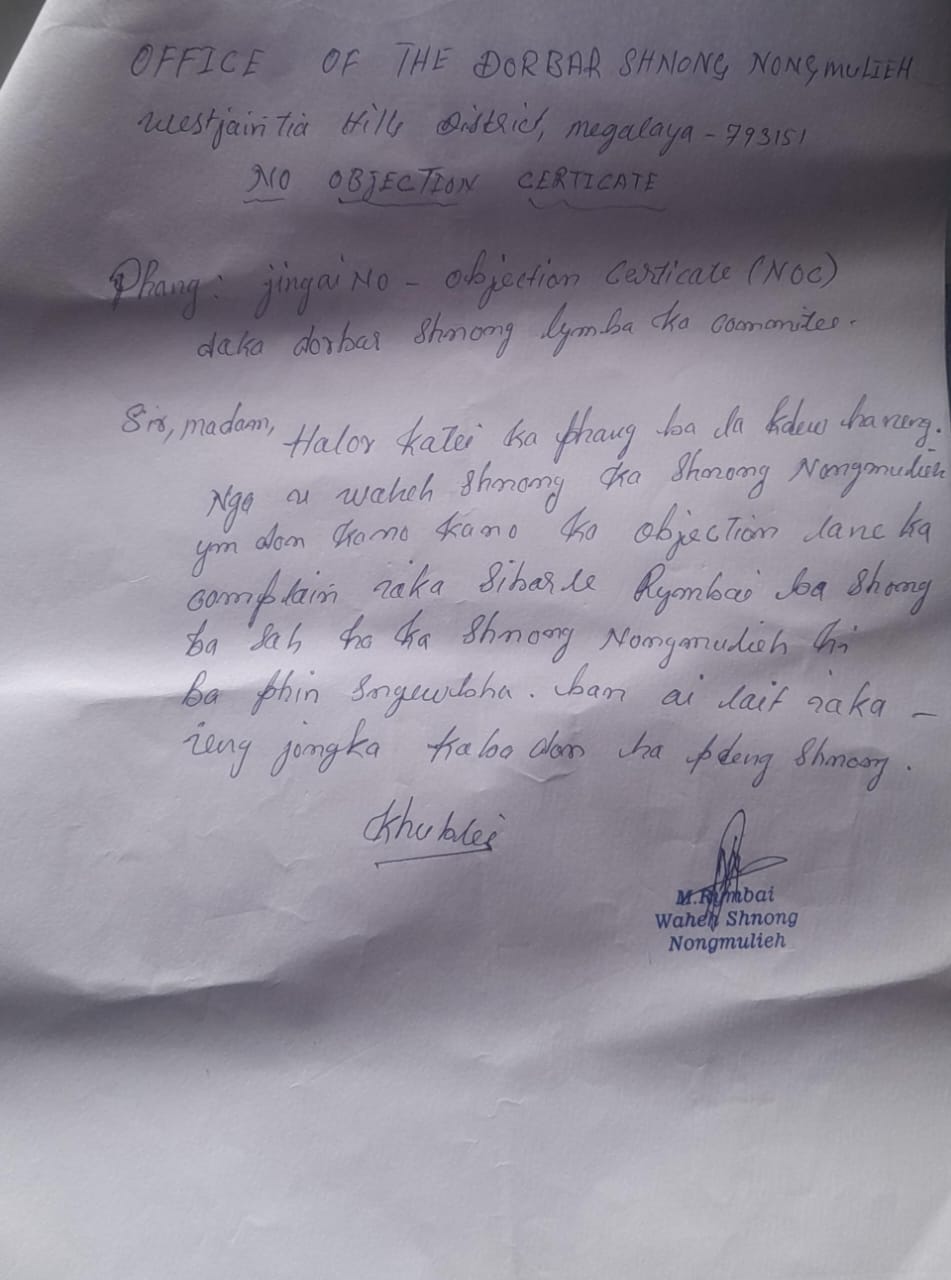 OFFICE OF THE DORBAR SHNONG NONGMULIEH
Westjaintia Hills District, megalaya - 793151
NO OBJECTION CERTICATE
Phang: jingai NO - objection Certicate (NOC)
daka dorbar Shnong lymba ka commitee.
Sir, madam,
Halor katei ka phang ba da kdew haneng.
Nga u waheh Shnong ka Shnong Nongmulieh
ym don kano kano ka objection lane ka
complain iaka Sibarle Rymbai ba Shong
ba sah ha ka Shnong Nongmulieh hi
ba phin sngewbha. ban ai lait iaka -
ieng jongka kaba don ha pdeng Shnong.
Khublei
M.Rymbai
Waheh Shnong
Nongmulieh